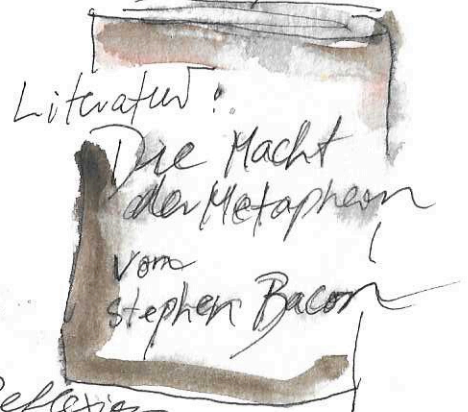 Literatur:
Die Macht
der Metaphern
von
Stephen Bacon
Reflexion